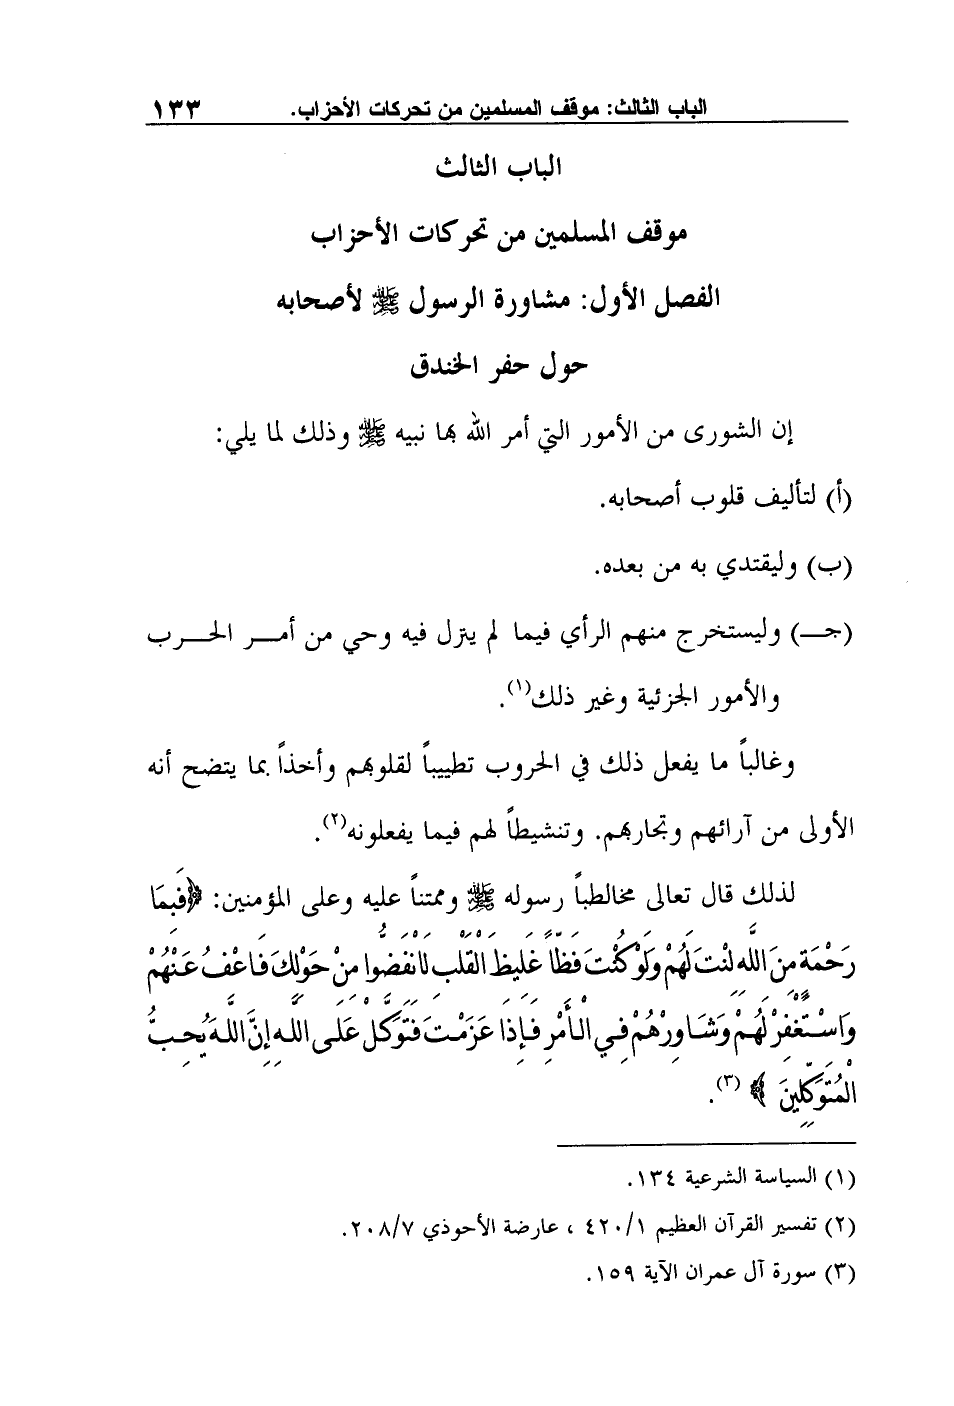 الباب الثالث: موقف المسلمين من تحركات الأحزاب. ١٣٣
الباب الثالث
موقف المسلمين من تحركات الأحزاب
الفصل الأول: مشاورة الرسول ﷺ لأصحابه
حول حفر الخندق
إن الشورى من الأمور التي أمر الله بها نبيه ﷺ وذلك لما يلي:
(أ) لتأليف قلوب أصحابه.
(ب) وليقتدي به من بعده.
(جـ) وليستخرج منهم الرأي فيما لم ينزل فيه وحي من أمر الحرب
والأمور الجزئية وغير ذلك(١).
وغالباً ما يفعل ذلك في الحروب تطييباً لقلوبهم وأخذاً بما يتضح أنه
الأولى من آرائهم وتجاربهم. وتنشيطاً لهم فيما يفعلونه(٢).
لذلك قال تعالى مخالطباً رسوله ﷺ وممتناً عليه وعلى المؤمنين: ﴿فَبِمَا
رَحْمَةٍ مِنَ اللَّهِ لِنْتَ لَهُمْ وَلَوْ كُنْتَ فَظّاً غَلِيظَ الْقَلْبِ لَانْفَضُّوا مِنْ حَوْلِكَ فَاعْفُ عَنْهُمْ
وَاسْتَغْفِرْ لَهُمْ وَشَاوِرْهُمْ فِي الْأَمْرِ فَإِذَا عَزَمْتَ فَتَوَكَّلْ عَلَى اللَّهِ إِنَّ اللَّهَ يُحِبُّ
الْمُتَوَكِّلِينَ ﴾ (٣).
(١) السياسة الشرعية ١٣٤.
(٢) تفسير القرآن العظيم ٤٢٠/١ ، عارضة الأحوذي ٢٠٨/٧.
(٣) سورة آل عمران الآية ١٥٩.